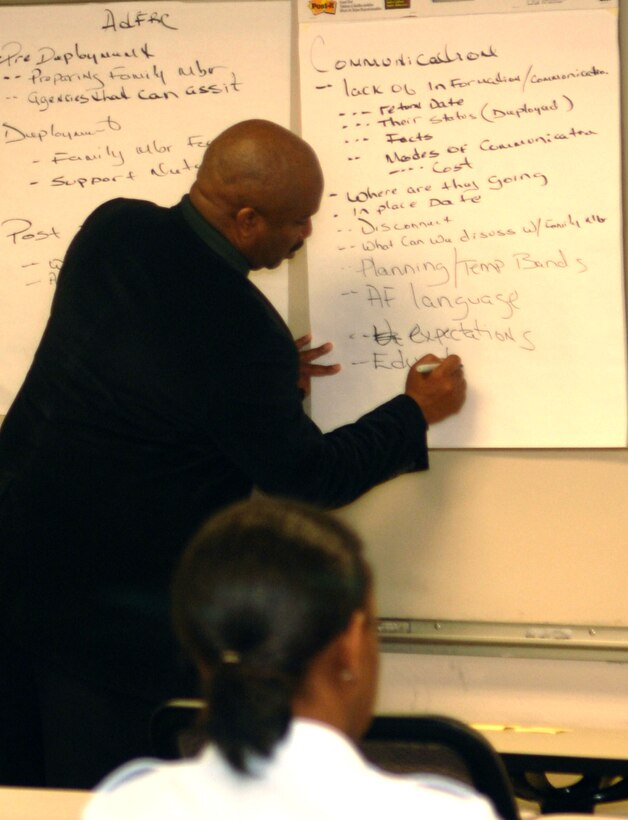 AdFRC
Pre Deployment
-- Preparing Family Mbr
-- Agencies that can assit
Deployment
- Family Mbr
- Support
Post
Post-it
Communication
-- lack of Information/Communication
--- Return Date
--- Their Status (Deployed)
--- Facts
-- Modes of Communication
---- Cost
- Where are they going
- In place Date
-- Disconnect
-- What Can we discuss w/Family Mbr
-- Planning/Temp Bands
-- AF language
-- expectations
-- Edu